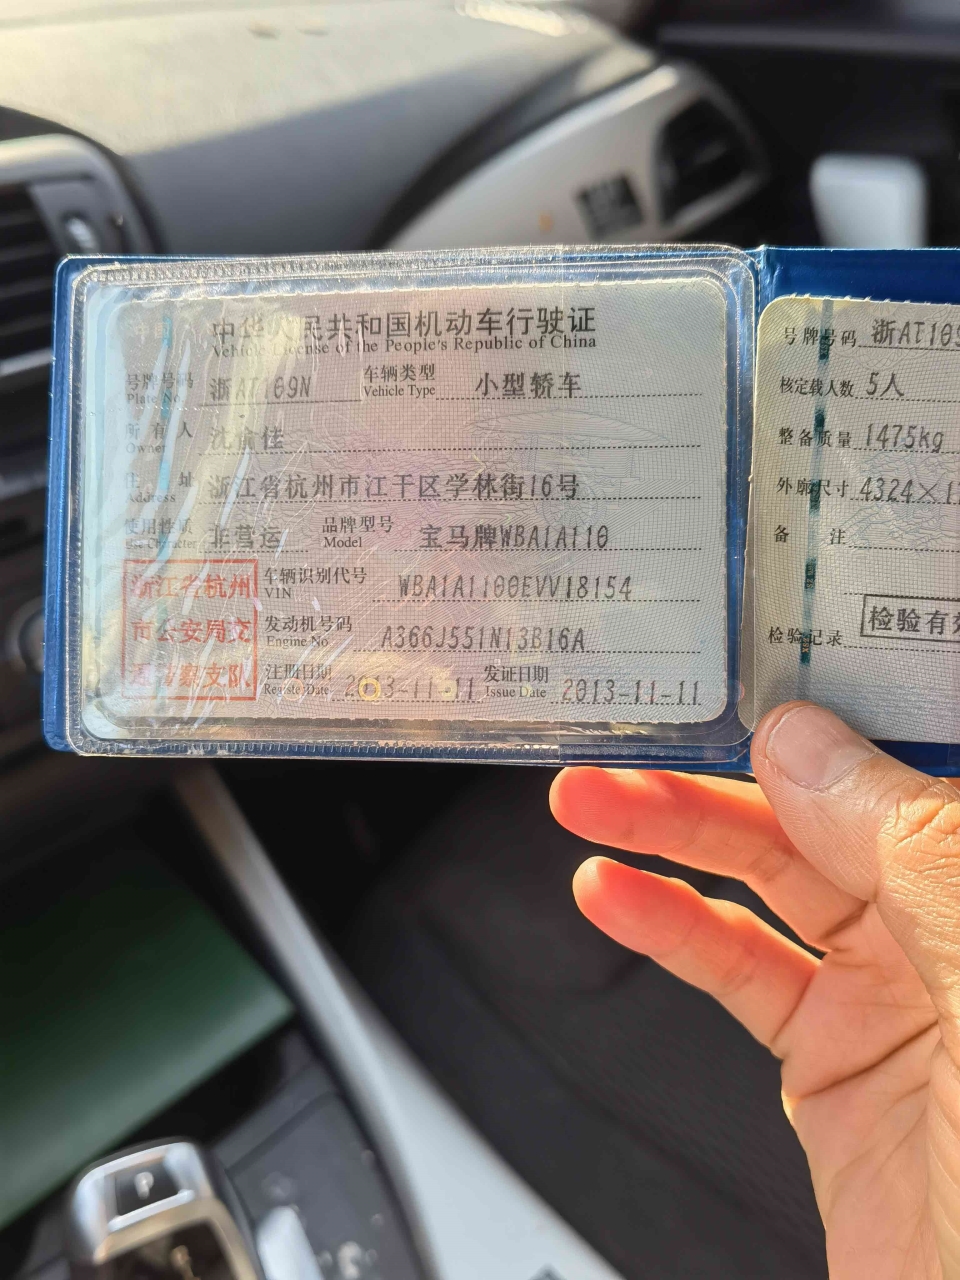 中华人民共和国机动车行驶证
Vehicle License of the People's Republic of China
号牌号码 浙AT109N 车辆类型 小型轿车
Plate No. Vehicle Type
所有人 沈俞佳
Owner
住址 浙江省杭州市江干区学林街16号
Address
使用性质 非营运 品牌型号 宝马牌WBA1A110
Use Character Model
浙江省杭州
市公安局交
通警察支队
车辆识别代号 WBA1A1100EVV18154
VIN
发动机号码 A366J551N13B16A
Engine No.
注册日期 2013-11-11 发证日期 2013-11-11
Register Date Issue Date
号牌号码 浙AT109
核定载人数 5人
整备质量 1475kg
外廓尺寸 4324×17
备注
检验记录 检验有效
P